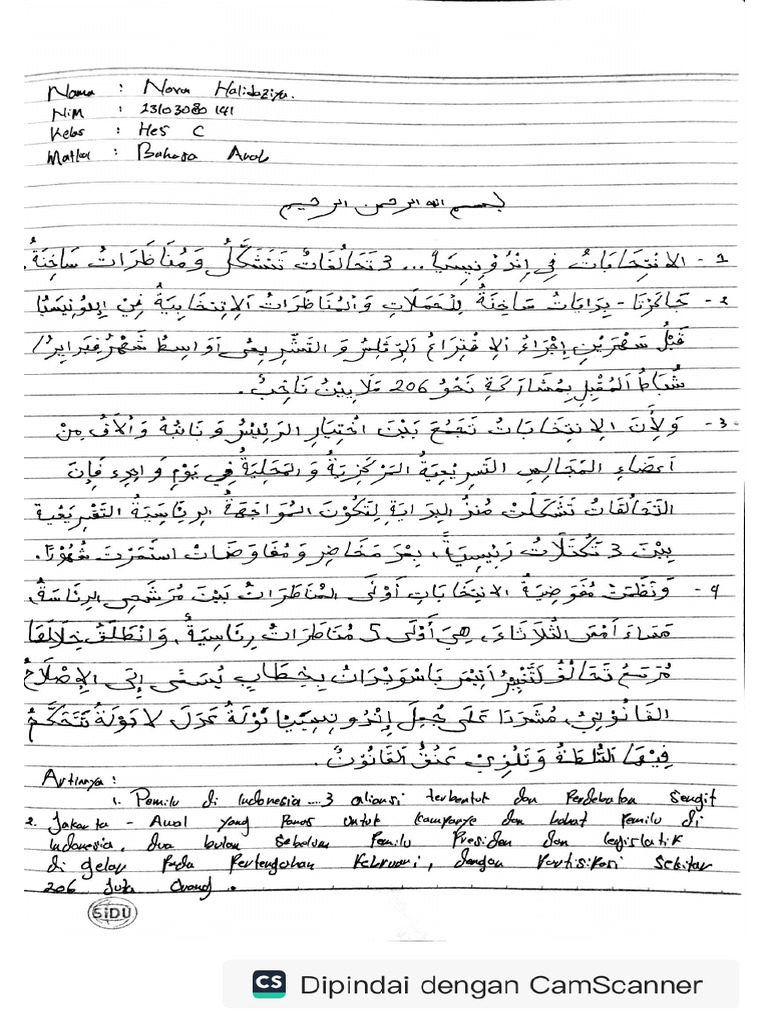 Nama : Nova Halidaziya.
NiM : 23103080141
Kelas : Hes C
Matkul : Bahasa Arab
بسم الله الرحمن الرحيم
1 - الانتِخَابَاتُ فِي اِنْدُونِيسِيَا ... 3 تَحَالُفَاتُ تَتَشَكَّلُ وَمُنَاظَرَاتُ سَاخِنَةُ.
2 - جَاكَرْتَا - بِدَايَاتُ سَاخِنَةُ لِلْحَمَلَاتِ وَالمُنَاظَرَاتُ الاِنتِخَابِيَةُ فِي اِندُونِيسْيَا
قَبْلُ شَهْرَيْنِ اِجْرَاءُ الاِقْتِرَاعُ الرِئَاسِ وَالتَشْرِيعِى أَوَاسِطُ شَهْرُ فِبرَايِرُ/
شُبَاطُ المُقْبِلِ بِمُشَارَكَةِ نَحْوُ 206 مَلَايِيْنُ نَاخِبُ.
3 - وَلِأَنَ الاِنتِخَابَاتُ تَجْمَعُ بَيْنَ اخْتِيَارِ الرَئِيسُ وَنَائِبُهُ وَآلَافُ مِنْ
أَعضَاءِ المَجَالِسِ التَسْرِيعِيَةُ المَرْكَزِيَةُ وَالمَحَلِيَةُ فِي يَوْمِ وَاحِدِ فَإِنَ
التَحَالُفَاتُ تَشَكَلَتْ مُنذُ البِدَايَةِ لِتَكُونَ المُوَاجَهَةُ الرِئَاسِيَةُ التَقْرِيعِية
بَيْنَ 3 تَكَتُلَاتُ رَئِيسِيَةً، بَعْدَ مَخَاضِ وَمُفَاوَضَاتُ اسْتَمَرَتْ شُهُوْرًا.
4 - وَنَظَمَتْ مُفَوَضِيَةُ الاِنتِخَابَاتِ أَوْلَى المُنَاظَرَاتُ بَيْنَ مُرَشَحِي الرِئَاسَةُ.
مَسَاءَ أَمْسِ الثُلَاثَاءَ، هِيَ أَوْلَى 5 مُنَاظَرَاتُ رِئَاسِيَةُ، وَانْطَلَقُ خِلَالَهَا
مُرَشَحُ تَحَالُفُ لتَغْيِيْرُ أَنِيْسَ بَاسْوِيْدَانُ بِخِطَابِ يُسْعَى إِلَى الإِصْلَاحُ
القَانُونِيُ، مُشَدِدًا عَلَى جَعلِ إِنْدُونِيْسِيَا دَوْلَةُ عَدْلَ لَا دَوْلَةُ تَتَحَكَّمُ
فِيْهَا السُلْطَةُ وَتَلْوِيْ عَنُقُ القَانُوْنُ.
Artinya :
1. Pemilu di Indonesia ....3 aliansi terbentuk dan Perdebatan Sengit
2. Jakarta - Awal yang Panas untuk kampanye dan Debat Pemilu di
Indonesia, dua bulan sebelum Pemilu Presiden dan legislatik
di gelar Pada Pertengahan Februari, dengan Partisikasi Sekitar
206 Juta Orang.
SiDU
CS Dipindai dengan CamScanner